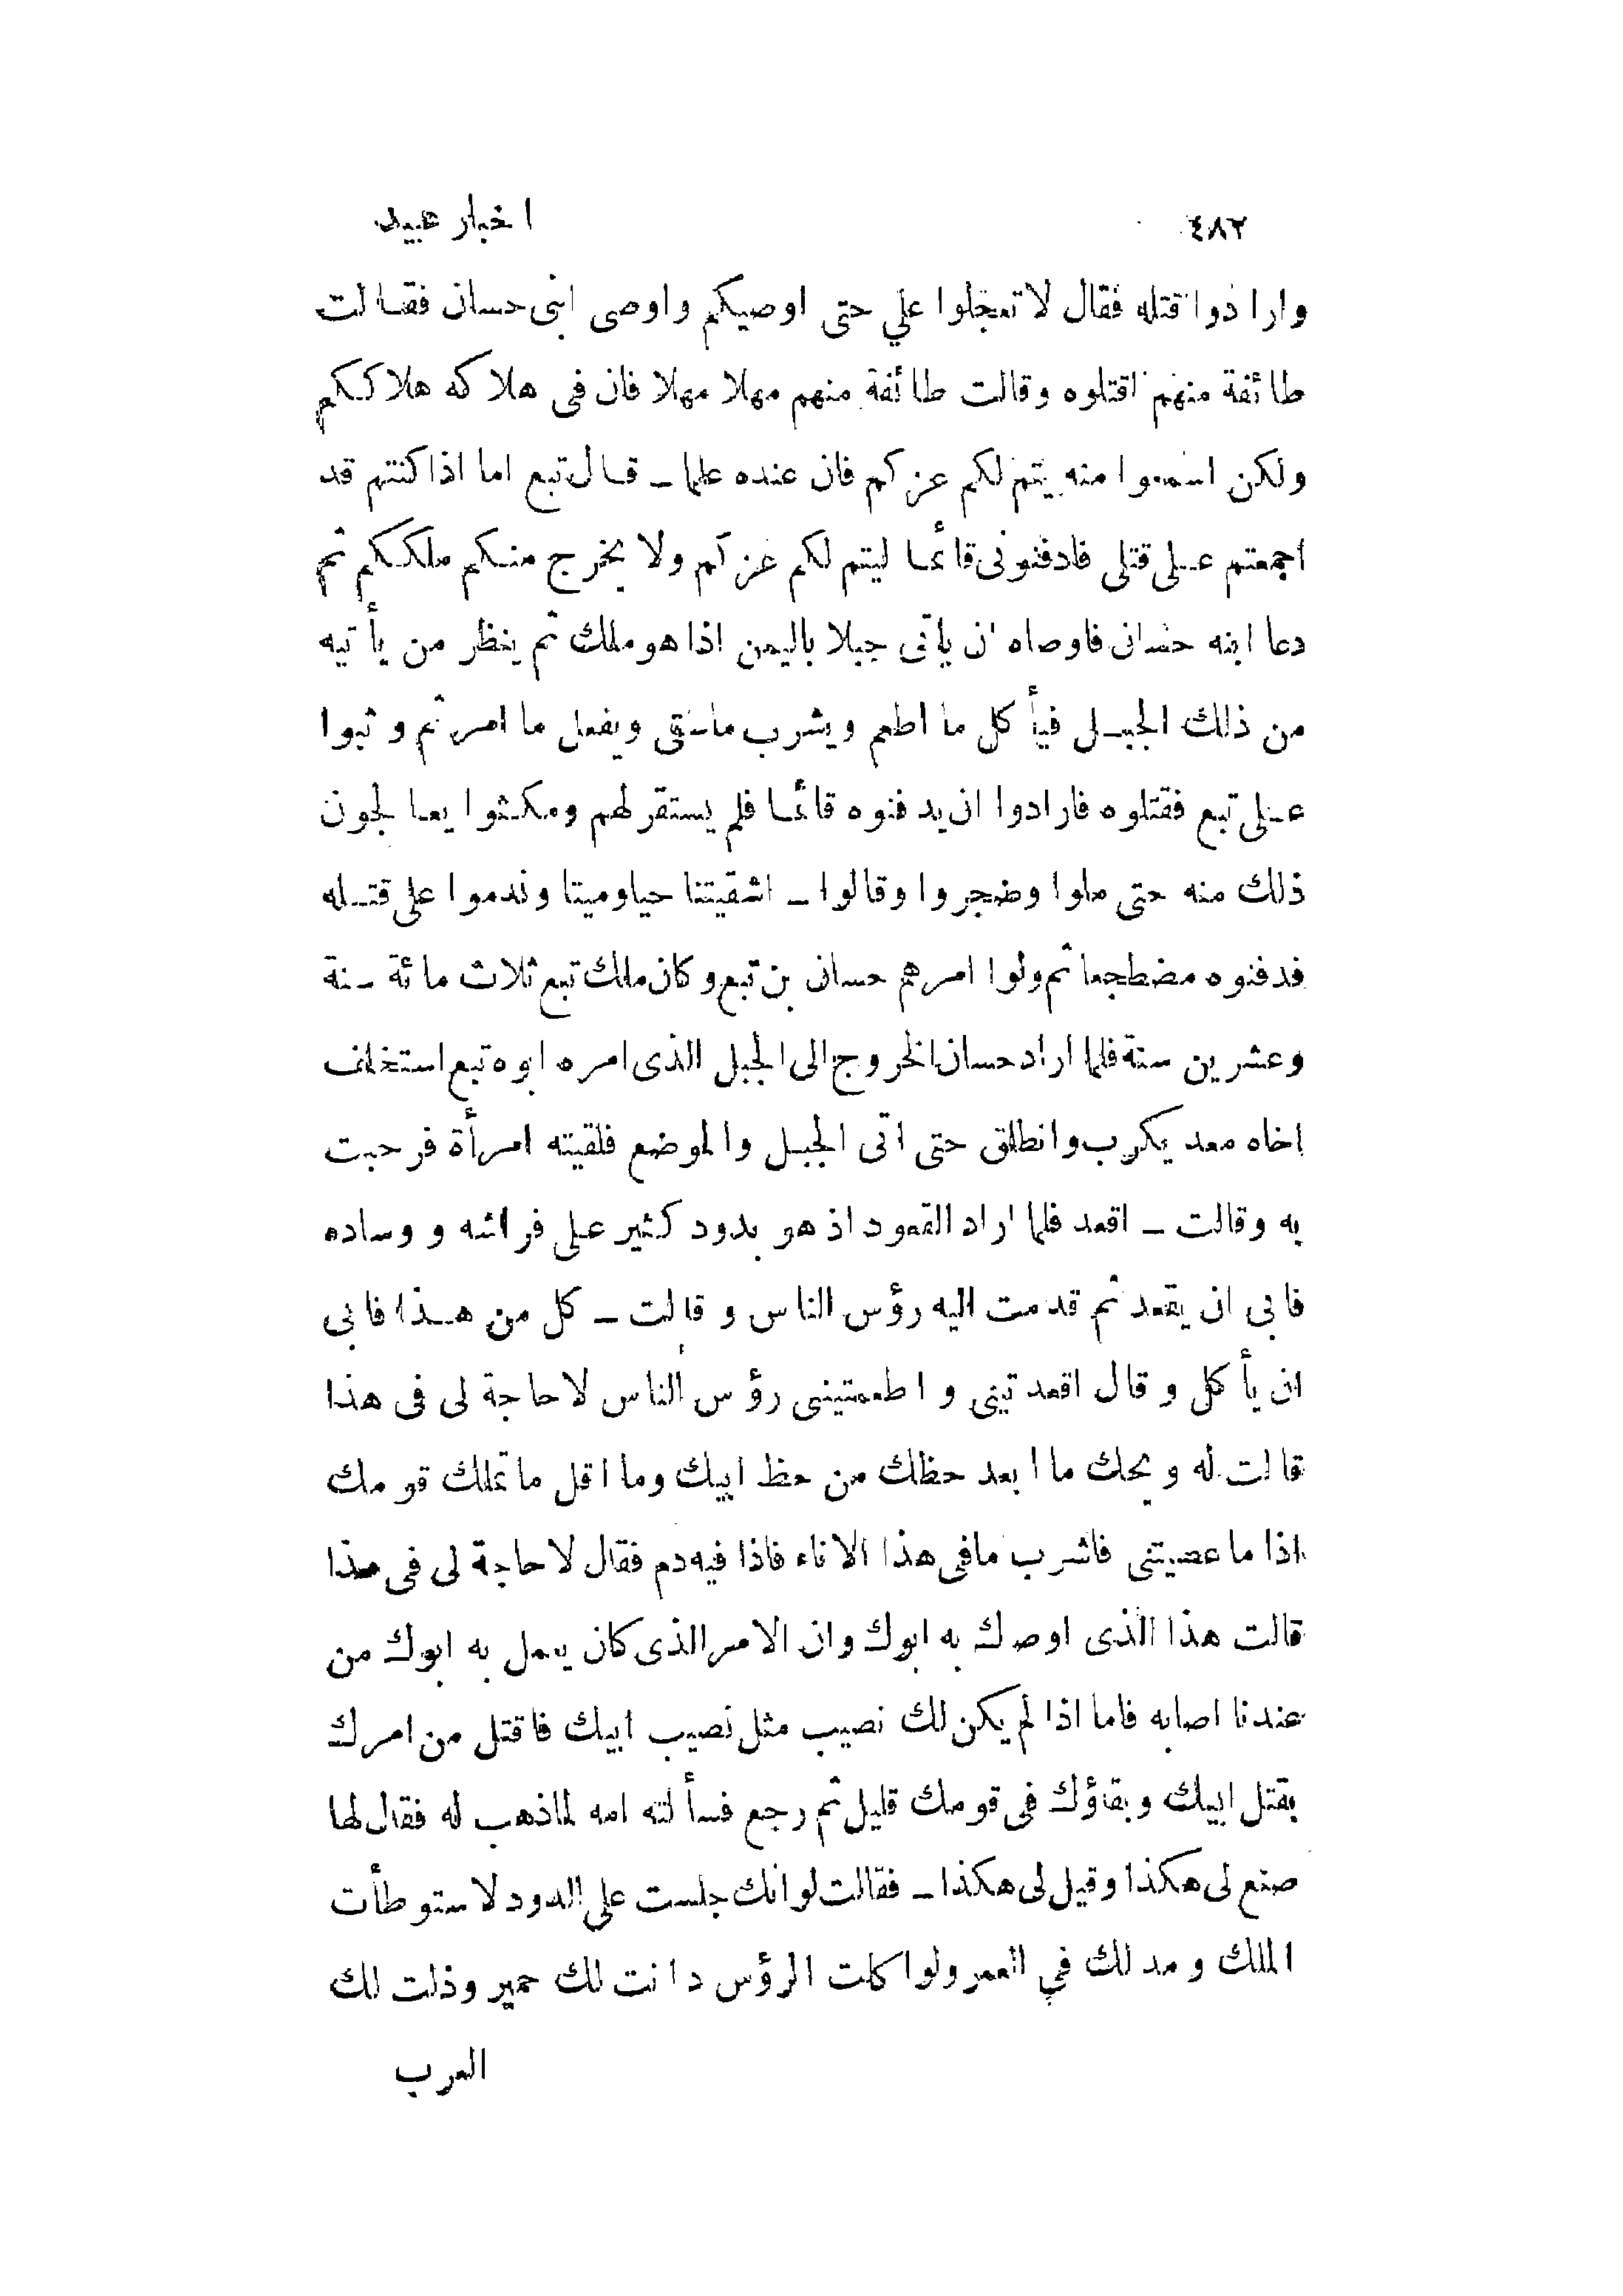 ٤٨٢ اخبار عبيد
وارادوا قتله فقال لا تعجلوا علي حتى اوصيكم واوصى ابنى حسان فقالت
طائفة منهم اقتلوه وقالت طائفة منهم مهلا مهلا فان فى هلاكه هلاككم
ولكن اسمعوا منه يتم لكم عزكم فان عنده علما ـ قال تبع اما اذا كنتم قد
اجمعتم على قتلى فادفنونى قائما ليتم لكم عزكم ولا يخرج منكم ملككم ثم
دعا ابنه حسان فاوصاه ان يأتى جبلا باليمن اذا هو ملك ثم ينظر من يأتيه
من ذلك الجبل فيأكل ما اطعم ويشرب ماسقى ويفعل ما امر ثم وثبوا
على تبع فقتلوه فارادوا ان يدفنوه قائما فلم يستقر لهم ومكثوا يعالجون
ذلك منه حتى ملوا وضجروا وقالوا ـ اشقيتنا حيا وميتا وندموا على قتله
فدفنوه مضطجعا ثم ولوا امرهم حسان بن تبع وكان ملك تبع ثلاث مائة سنة
وعشرين سنة فلما اراد حسان الخروج الى الجبل الذى امره ابوه تبع استخلف
اخاه معد يكرب وانطلق حتى اتى الجبل والموضع فلقيته امرأة فرحبت
به وقالت ـ اقعد فلما اراد القعود اذ هو بدود كثير على فراشه و وساده
فابى ان يقعد ثم قدمت اليه رؤس الناس و قالت ـ كل من هذا فابى
ان يأكل و قال اقعدتينى و اطعمتينى رؤس الناس لا حاجة لى فى هذا
قالت له ويحك ما ابعد حظك من حظ ابيك وما اقل ما تملك قومك
اذا ما عصيتنى فاشرب مافى هذا الاناء فاذا فيه دم فقال لا حاجة لى فى هذا
قالت هذا الذى اوصك به ابوك وان الامر الذى كان يعمل به ابوك من
عندنا اصابه فاما اذا لم يكن لك نصيب مثل نصيب ابيك فاقتل من امرك
بقتل ابيك وبقاؤك فى قومك قليل ثم رجع فسألته امه لماذهب له فقال لها
صنع لى هكذا وقيل لى هكذا ـ فقالت لو انك جلست على الدود لاستوطأت
الملك و مد لك في العمر ولو اكلت الرؤس دانت لك حمير وذلت لك
العرب